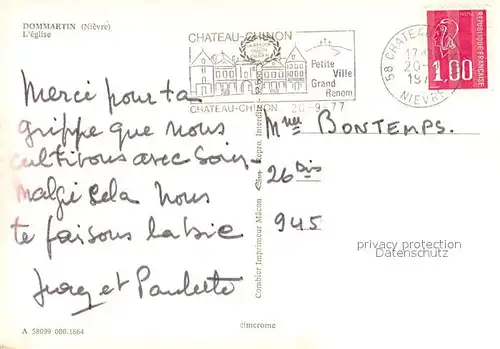 DOMMARTIN (Nièvre)
L'église
CHATEAU-CHINON
Petite
Ville
Grand
Renom
CHATEAU-CHINON
20-9-77
58 CHATEAU
17-
20-
19
NIEVRE
1,00
Merci pour ta
grippe que nous
cultivons avec soin
malgré cela nous
te faisons la bise
et Paulette
BONTEMPS.
26 Bis
945
Combier Imprimeur Mâcon Repro. Interdite
privacy protection
Datenschutz
A 58099 000.1864
cimcrome